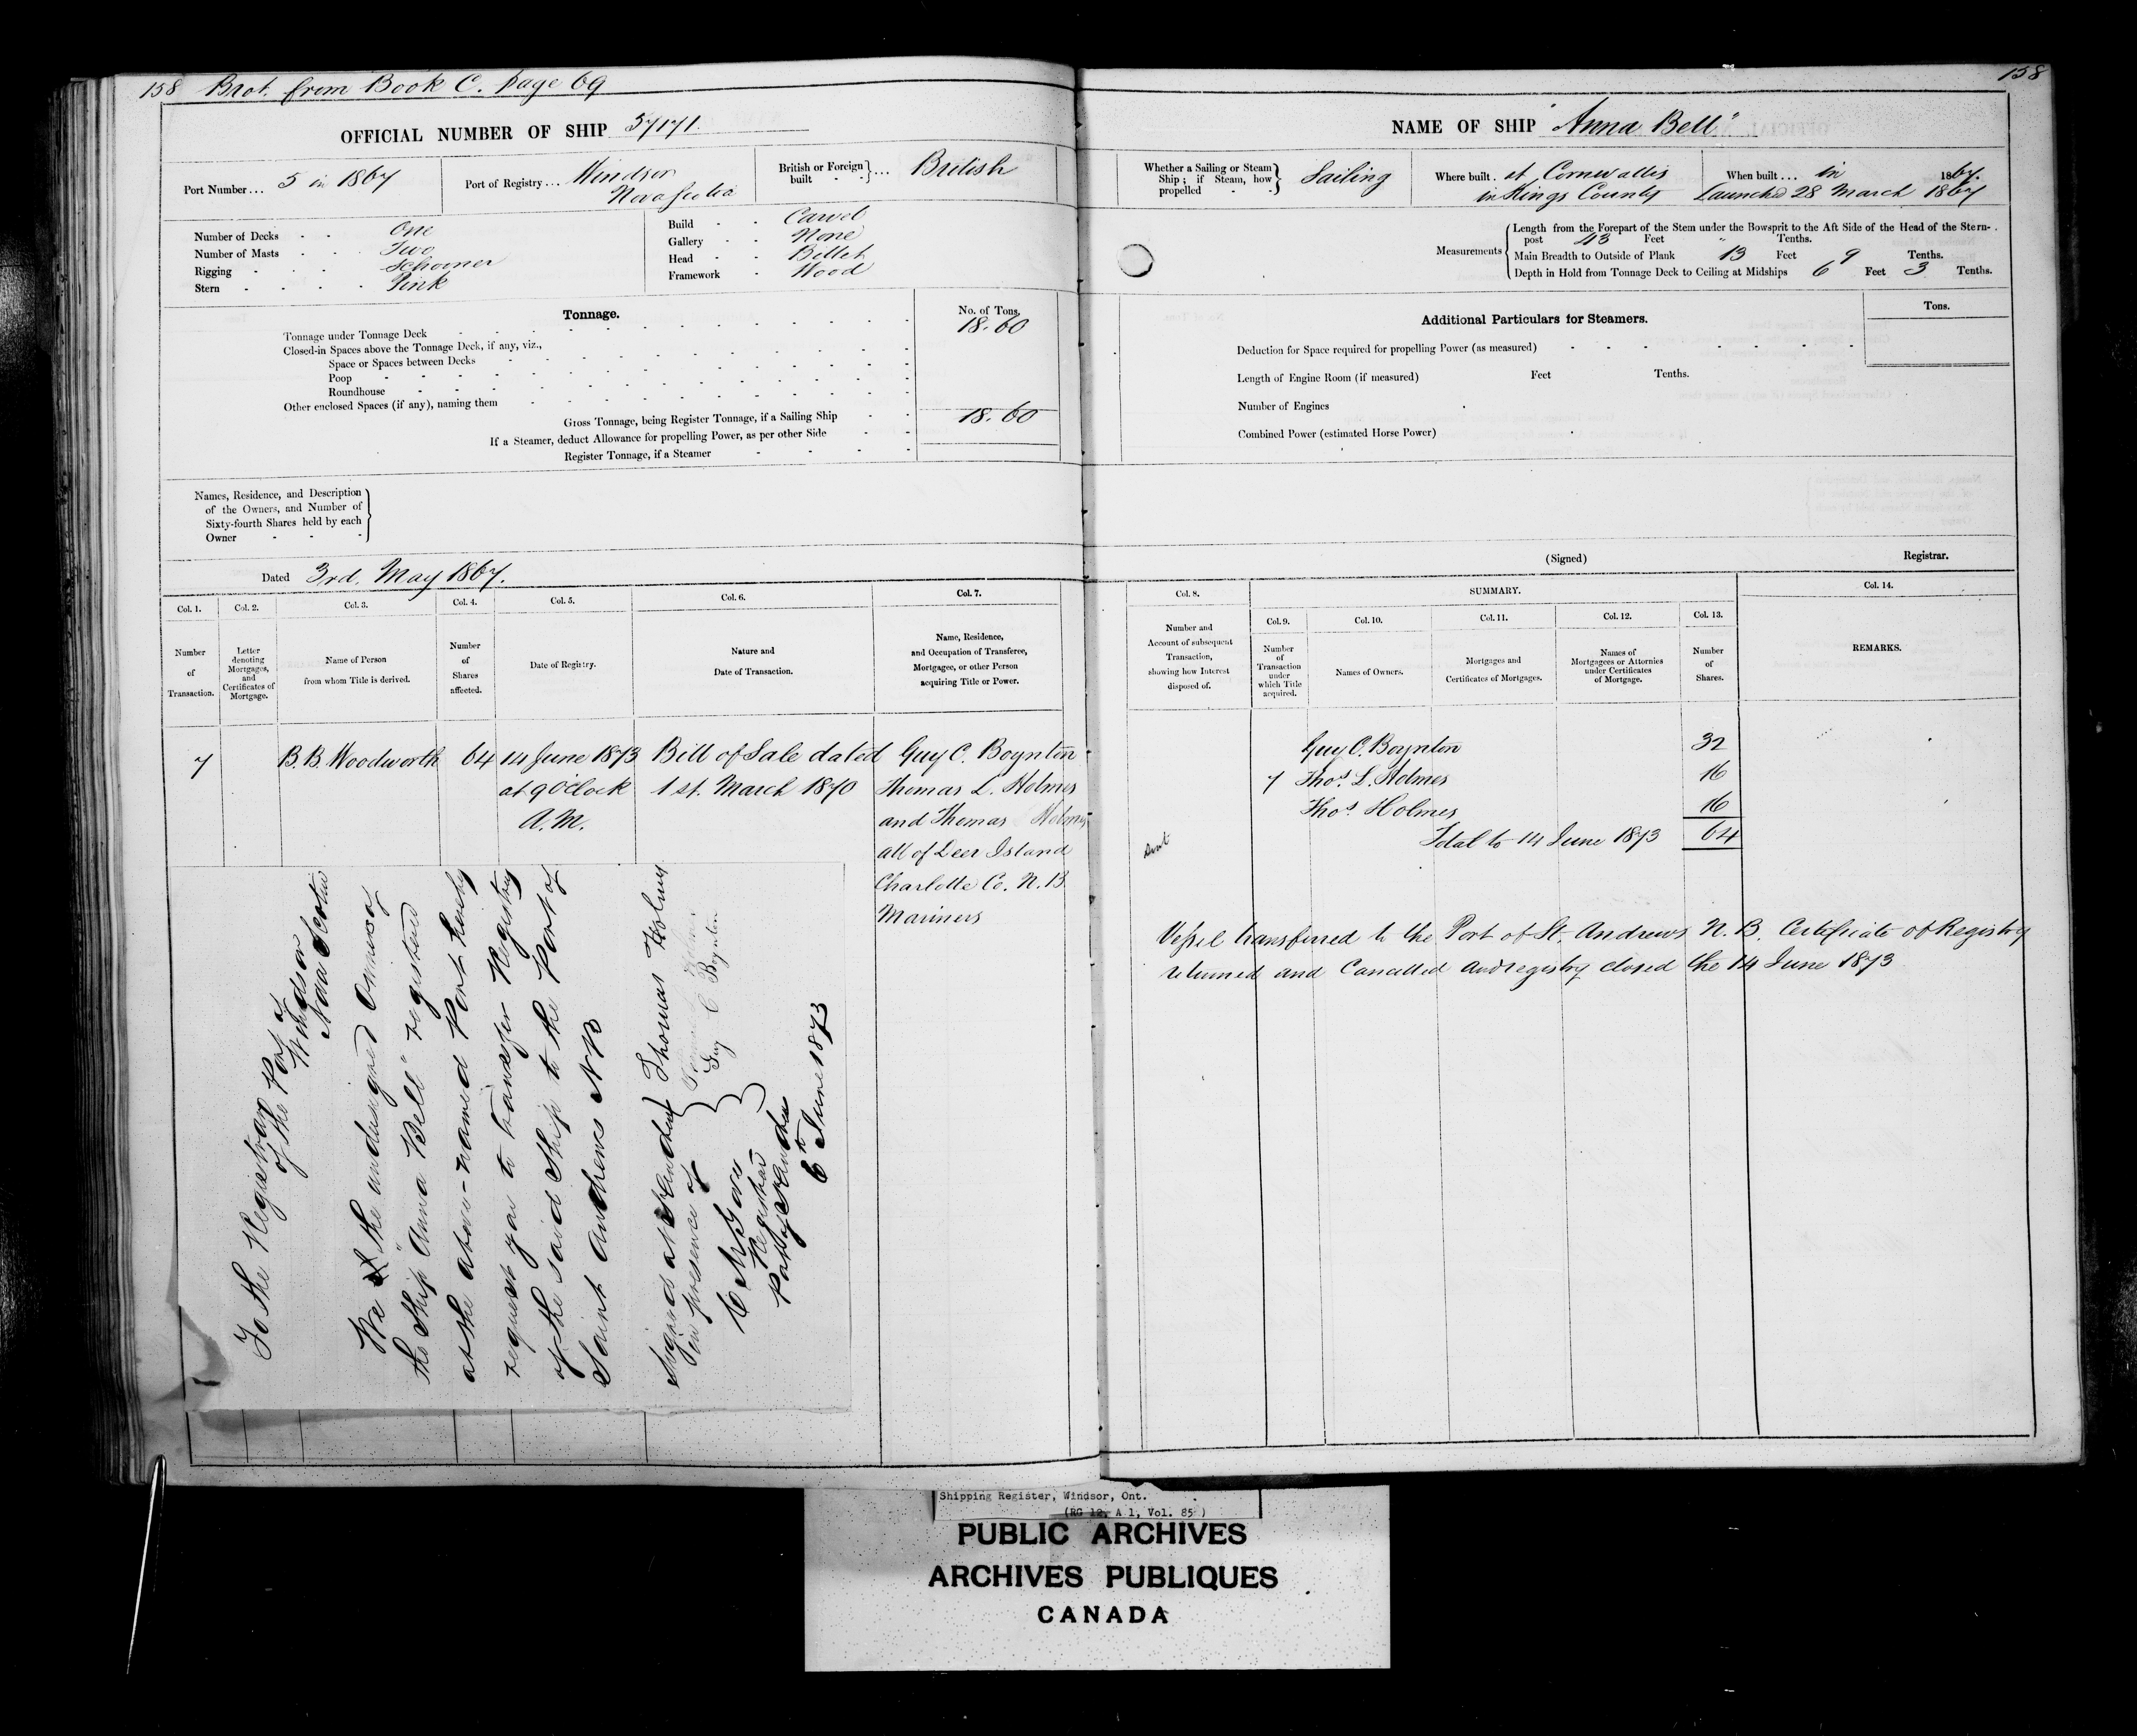 158 Brot. from Book C. Page 69
OFFICIAL NUMBER OF SHIP 57171.
Port Number... 5 in 1867
Port of Registry... Windsor
Nova Scotia
British or Foreign built } ... British
Number of Decks - - One
Number of Masts - - Two
Rigging - - - Schooner
Stern - - - - Pink
Build - - Carvel
Gallery - - None
Head - - Billet
Framework - Wood
Tonnage.
No. of Tons.
Tonnage under Tonnage Deck 18.60
Closed-in Spaces above the Tonnage Deck, if any, viz.,
Space or Spaces between Decks
Poop
Roundhouse
Other enclosed Spaces (if any), naming them
Gross Tonnage, being Register Tonnage, if a Sailing Ship 18.60
If a Steamer, deduct Allowance for propelling Power, as per other Side
Register Tonnage, if a Steamer
Names, Residence, and Description
of the Owners, and Number of
Sixty-fourth Shares held by each
Owner
Dated 3rd. May 1867.
Col. 1. Col. 2. Col. 3. Col. 4. Col. 5. Col. 6. Col. 7.
Number of Transaction.
Letter denoting Mortgages, and Certificates of Mortgage.
Name of Person from whom Title is derived.
Number of Shares affected.
Date of Registry.
Nature and Date of Transaction.
Name, Residence, and Occupation of Transferee, Mortgagee, or other Person acquiring Title or Power.
7 B. B. Woodworth 64 14 June 1873 Bill of Sale dated Guy C. Boynton
at 9 O'clock 1st. March 1870 Thomas L. Holmes
A.M. and Thomas Holmes
all of Deer Island
Charlotte Co. N.B
Mariners
To the Registrar
of the Port of
Windsor
Nova Scotia
We the undersigned Owners of
the Ship "Anna Bell" registered
at the above-named Port hereby
request you to transfer Registry
of the said Ship to the Port of
Saint Andrews NB
Signed at St Andrews
in presence of
Thomas Holmes
Guy C Boynton
Registrar
Port of St Andrews
6th June 1873
158
NAME OF SHIP "Anna Bell"
Whether a Sailing or Steam
Ship; if Steam, how
propelled } Sailing
Where built. at Cornwallis
in Kings County
When built... in 1867.
Launched 28 March 1867
Measurements
Length from the Forepart of the Stem under the Bowsprit to the Aft Side of the Head of the Stern-
post 43 Feet " Tenths.
Main Breadth to Outside of Plank 13 Feet 9 Tenths.
Depth in Hold from Tonnage Deck to Ceiling at Midships 6 Feet 3 Tenths.
Additional Particulars for Steamers.
Tons.
Deduction for Space required for propelling Power (as measured)
Length of Engine Room (if measured) Feet Tenths.
Number of Engines
Combined Power (estimated Horse Power)
(Signed) Registrar.
Col. 8. SUMMARY. Col. 14.
Col. 9. Col. 10. Col. 11. Col. 12. Col. 13.
Number and Account of subsequent Transaction, showing how Interest disposed of.
Number of Transaction under which Title acquired.
Names of Owners.
Mortgages and Certificates of Mortgages.
Names of Mortgagees or Attornies under Certificates of Mortgage.
Number of Shares.
REMARKS.
Guy C. Boynton 32
7 Thos. L. Holmes 16
Thos. Holmes 16
Total to 14 June 1873 64
Vessel transferred to the Port of St. Andrews N. B. Certificate of Registry
returned and Cancelled and registry closed the 14 June 1873
Shipping Register, Windsor, Ont.
(RG 12, A 1, Vol. 85 )
PUBLIC ARCHIVES
ARCHIVES PUBLIQUES
CANADA